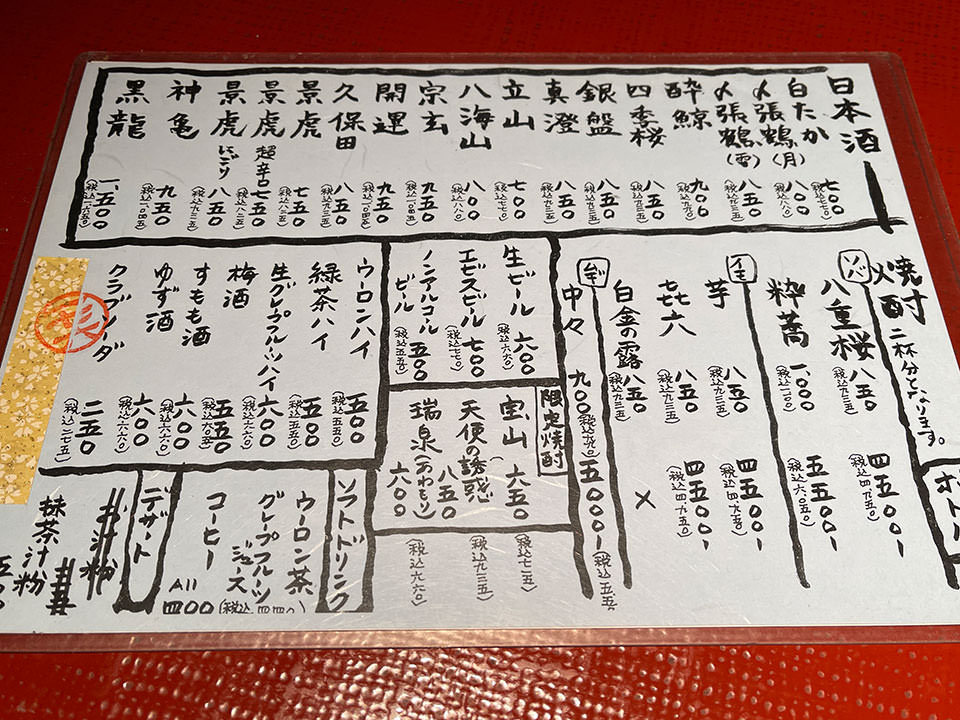 日本酒
白たか 七〇〇 (税込七七〇)
〆張鶴(月) 八〇〇 (税込八八〇)
〆張鶴(雪) 八五〇 (税込九三五)
酔鯨 九〇〇 (税込九九〇)
四季桜 八五〇 (税込九三五)
銀盤 八五〇 (税込九三五)
真澄 八五〇 (税込九三五)
立山 七〇〇 (税込七七〇)
八海山 八〇〇 (税込八八〇)
宗玄 九五〇 (税込一、〇四五)
開運 九五〇 (税込一、〇四五)
久保田 八五〇 (税込九三五)
景虎 七五〇 (税込八二五)
景虎 超辛口 七五〇 (税込八二五)
景虎 にごり 八五〇 (税込九三五)
神亀 九五〇 (税込一、〇四五)
黒龍 一、五〇〇 (税込一、六五〇)
焼酎 二杯分となります。
ボトル
ソバ
八重桜 八五〇 (税込九三五) 四五〇〇ー (税込四、九五〇)
粋蕎 一、〇〇〇 (税込一一〇〇) 五五〇〇ー (税込六、〇五〇)
イモ
芋 八五〇 (税込九三五) 四五〇〇ー (税込四、九五〇)
㐂六 八五〇 (税込九三五) 四五〇〇ー (税込四、九五〇)
白金の露 八五〇 (税込九三五) ×
ムギ
中々 九〇〇 (税込九九〇) 五〇〇〇ー (税込五、五
生ビール 六〇〇 (税込六六〇)
エビスビール 七〇〇 (税込七七〇)
ノンアルコールビール 五〇〇 (税込五五〇)
限定焼酎
宝山 六五〇 (税込七一五)
天使の誘惑 八五〇 (税込九三五)
瑞泉(あわもり) 六〇〇 (税込六六〇)
ウーロンハイ 五〇〇 (税込五五〇)
緑茶ハイ 五〇〇 (税込五五〇)
生グレープフルーツハイ 六〇〇 (税込六六〇)
梅酒 五五〇 (税込六〇五)
すもも酒 六〇〇 (税込六六〇)
ゆず酒 六〇〇 (税込六六〇)
クラブソーダ 二五〇 (税込二七五)
ソフトドリンク
ウーロン茶
グレープフルーツジュース
コーヒー
All 四〇〇 (税込四四〇)
デザート
汁粉
抹茶汁粉 五〇